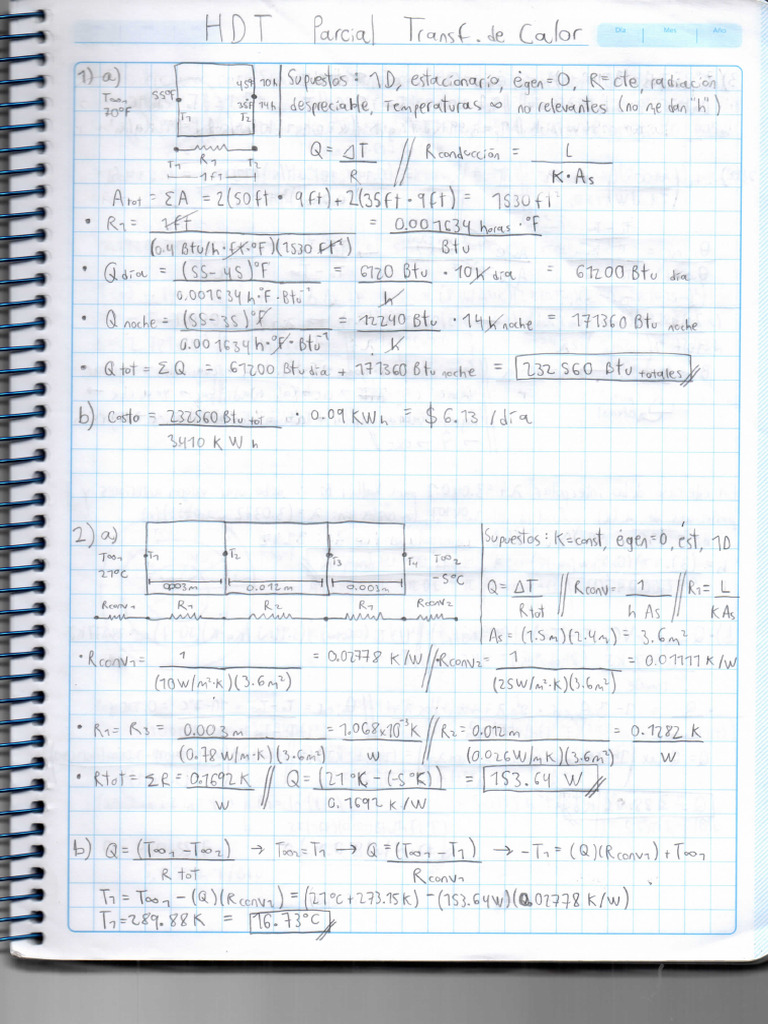 HDT Parcial Transf. de Calor
Día Mes Año
1) a) T∞1 70°F 55°F T1 45F 10h 35F 14h T2
T1 R1 T2
1ft
Supuestos: 1D, estacionario, ėgen=0, R=cte, radiación
despreciable, Temperaturas ∞ no relevantes (no me dan "h")
Q = ΔT / R // Rconducción = L / K·As
Atot = ΣA = 2(50ft · 9ft) + 2(35ft · 9ft) = 1530 ft²
• R1 = 1ft / (0.4 Btu/h·ft·°F)(1530 ft²) = 0.001634 horas·°F / Btu
• Q̇ día = (55-45)°F / 0.001634 h·°F·Btu⁻¹ = 6120 Btu / h · 10h día = 61200 Btu día
• Q̇ noche = (55-35)°F / 0.001634 h·°F·Btu⁻¹ = 12240 Btu / h · 14h noche = 171360 Btu noche
• Q tot = ΣQ = 61200 Btu día + 171360 Btu noche = 232 560 Btu totales
b) Costo = 232560 Btu tot / 3410 KWh · 0.09 KWh = $6.13 /día
2) a) T∞1 21°C T1 T2 T3 T4 T∞2 -5°C
0.003m 0.012m 0.003m
Rconv1 R1 R2 R1 Rconv2
Supuestos: K=const, ėgen=0, est, 1D
Q = ΔT / Rtot // Rconv = 1 / h As // R1 = L / KAs
As = (1.5m)(2.4m) = 3.6m²
• Rconv1 = 1 / (10W/m²·K)(3.6m²) = 0.02778 K/W // Rconv2 = 1 / (25W/m²·K)(3.6m²) = 0.01111 K/W
• R1 = R3 = 0.003m / (0.78 W/m·K)(3.6m²) = 1.068x10⁻³K / W // R2 = 0.012m / (0.026W/mK)(3.6m²) = 0.1282 K / W
• Rtot = ΣR = 0.1692K / W // Q = (21°K - (-5°K)) / 0.1692 K/W = 153.64 W
b) Q = (T∞1 - T∞2) / R tot → T∞2 = T1 → Q = (T∞1 - T1) / Rconv1 → -T1 = (Q)(Rconv1) + T∞1
T1 = T∞1 - (Q)(Rconv1) = (21°C + 273.15K) - (153.64W)(0.02778 K/W)
T1 = 289.88K = 16.73°C